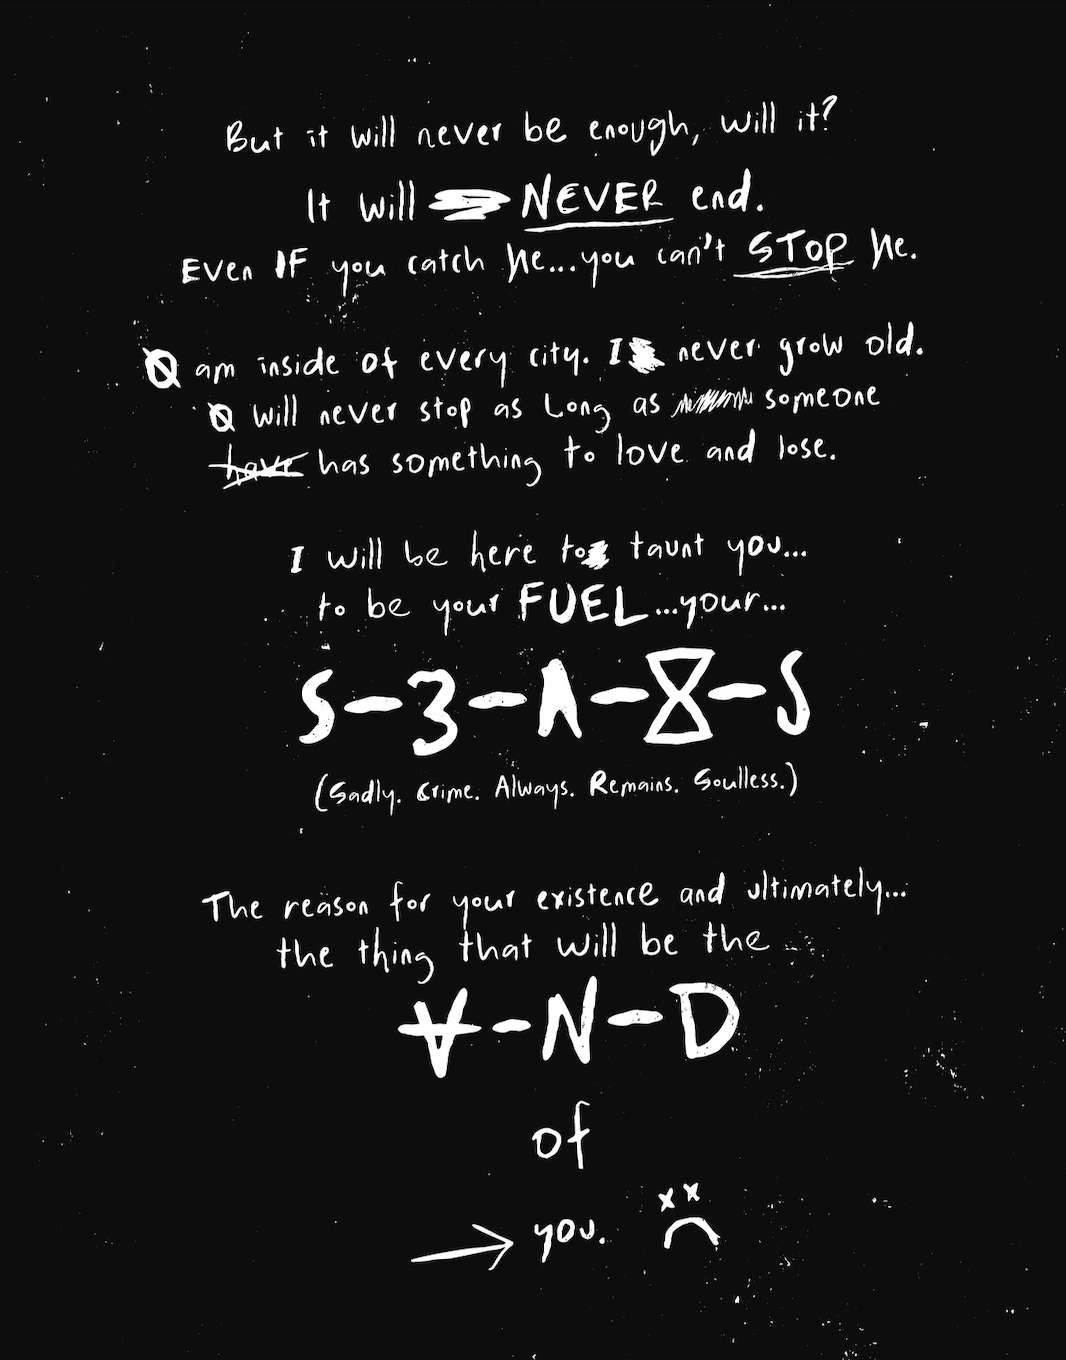 But it will never be enough, will it?
It will NEVER end.
Even IF you catch me...you can't STOP me.
I am inside of every city. I never grow old.
I will never stop as long as someone
have has something to love and lose.
I will be here to taunt you...
to be your FUEL...your...
S-3-A-8-S
(Sadly. Crime. Always. Remains. Soulless.)
The reason for your existence and ultimately...
the thing that will be the
∀-N-D
of
→ you.